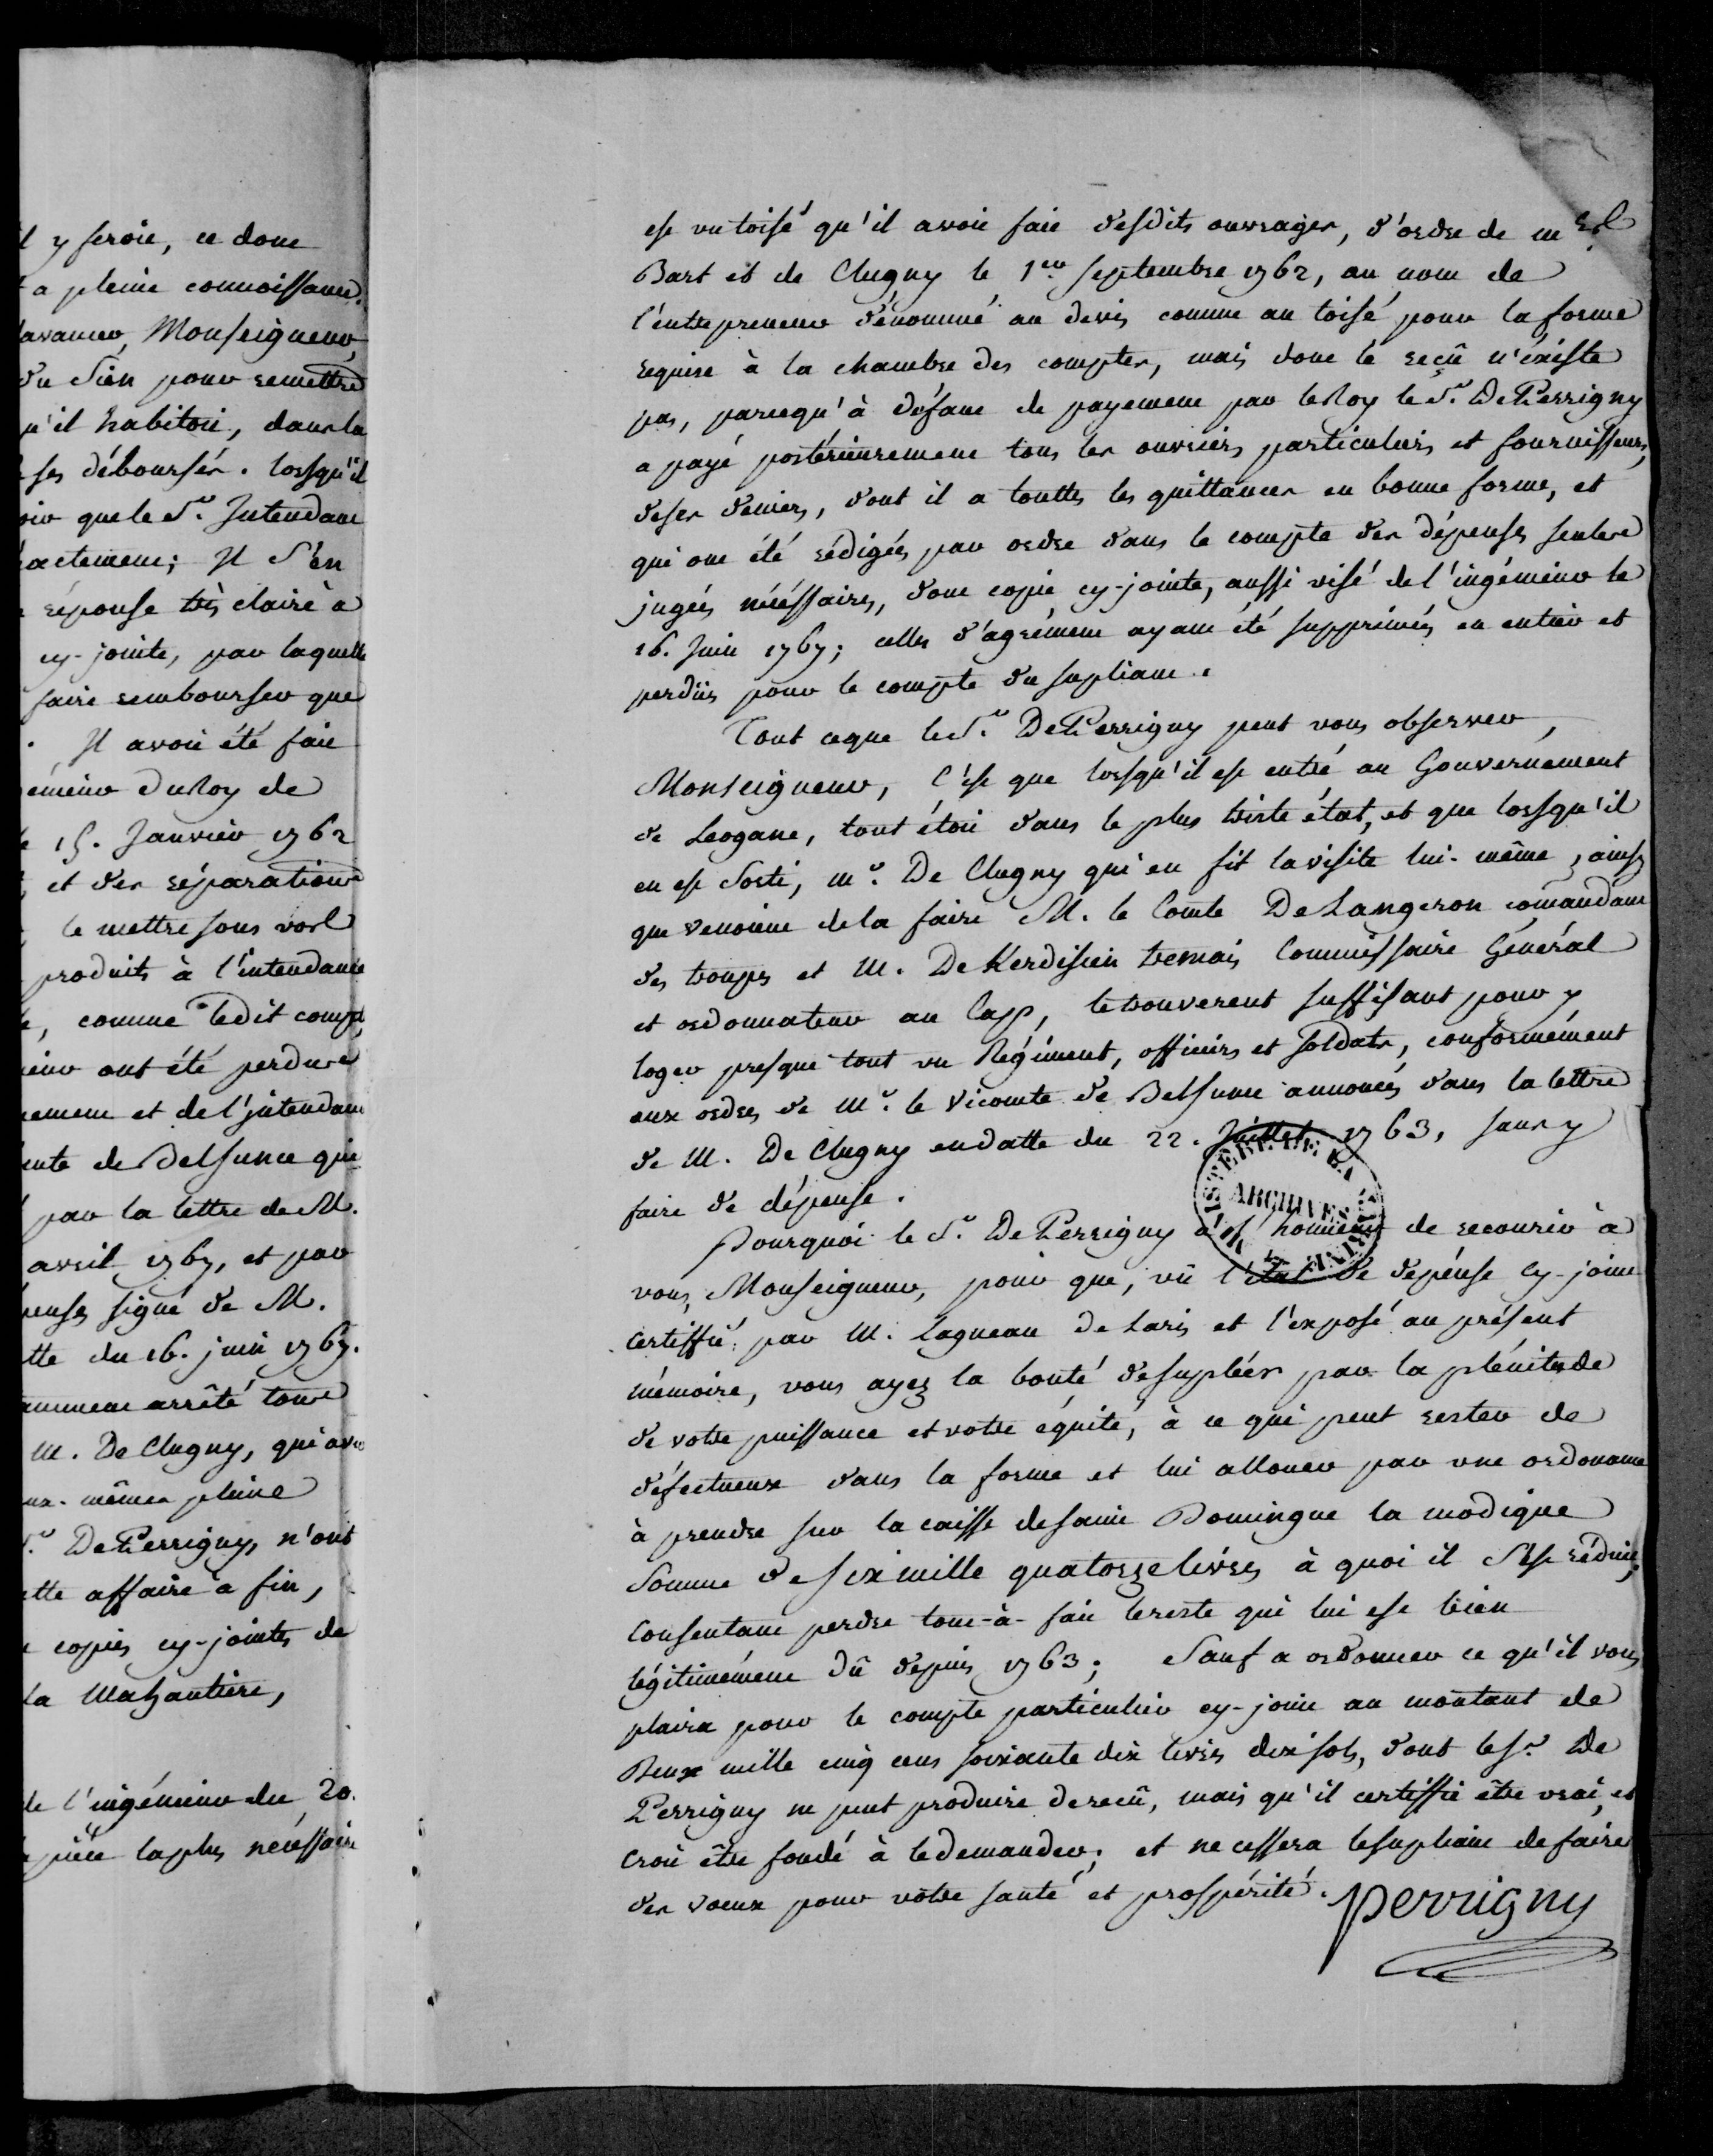 l y feroit, et dont
a pleine connoissance.
avances, Monseigneur,
du Sien pour remettre
u'il habitoit, dans la
ses déboursés. lorsqu'il
que le Sr. Intendant
actement; Il S'en
réponse très claire a
cy-jointe, par laquelle
faire rembourser que
. Il avoit été fait
énieur du Roy de
15. Janvier 1762
et des réparations
le mettre sous vos
produits à l'intendance
, comme ledit compte,
ont été perdues
ement et de l'intendant
de Belsunce qui
par la lettre de M.
avril 1767, et par
penses signé de M.
tte du 16. juin 1767.
arrêté tout
M. De Clugny, qui avec
ux-mêmes pleine
Sr. De Perrigny, n'ont
ette affaire à fin,
copies cy-jointes de
la Mahautiere,
de l'ingénieur du 20.
pièce la plus nécessaire
est un toisé qu'il avoit fait desdits ouvrages, d'ordre de mrs
Bart et de Clugny le 1er septembre 1762, au nom de
l'entrepreneur dénommé au devis comme au toisé pour la forme
requise à la chambre des comptes, mais dont le reçû n'éxiste
pas, parcequ'à défaut de payement par le Roy le Sr. De Perrigny
a payé postérieurement tous les ouvriers particuliers et fournisseurs,
de ses deniers, dont il a touttes les quittances en bonne forme, et
qui ont été rédigées par ordre dans le compte des dépenses seules
jugées nécéssaires, dont copie cy-jointe, aussi visé de l'ingénieur le
16. Juin 1767; celles d'agrément ayant été supprimées en entier et
perdües pour le compte du supliant.
Tout ceque le Sr. De Perrigny peut vous observer,
Monseigneur, C'est que lorsqu'il est entré au Gouvernement
de Leogane, tout étoit dans le plus triste état, et que lorsqu'il
en est Sorti, mr. De Clugny qui en fit la visite lui-même, ainsy
que venoient de la faire M. le Comte De Langeron comandant
des troupes et M. De Kerdisien tremais Commissaire Général
et ordonnateur au Cap, le trouverent suffisant pour y
loger presque tout un Régiment, officiers et soldats, conformément
aux ordres de Mr. le Vicomte de Belsunce annoncés dans la lettre
de M. De Clugny en datte du 22. Juillet 1763, sans y
faire de dépense.
Pourquoi le Sr. De Perrigny a l'honneur de recourir à
vous, Monseigneur, pour que, vû l'état de dépense cy-joint
certiffié par M. Lagneau de Laris et l'exposé au présent
mémoire, vous ayez la bonté de supléer par la plénitude
de votre puissance et votre équité, à ce qui peut rester de
déféctueux dans la forme et lui allouer par une ordonance
à prendre sur la caisse de saint Domingue la modique
Somme de six mille quatorze livres à quoi il S'est réduit,
Consentant perdre tout-à-fait le reste qui lui est bien
légitimément dû depuis 1763; Sauf a ordonner ce qu'il vous
plaira pour le compte particulier cy-joint au montant de
Deux mille cinq cens soixante dix livres dix sols, dont le Sr. De
Perrigny ne peut produire de recû, mais qu'il certiffie être vrai, et
Croit être fondé à le demander; et ne cessera le supliant de faire
des voeux pour vôtre santé et prospérité.
Perrigny
MINISTERE DE LA MARINE
ARCHIVES